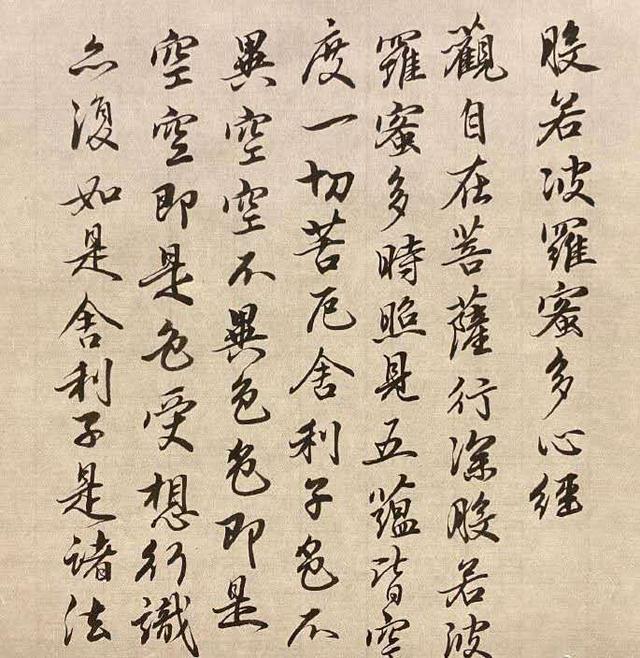 般若波羅蜜多心經
觀自在菩薩行深般若波
羅蜜多時照見五蘊皆空
度一切苦厄舍利子色不
異空空不異色色即是
空空即是色受想行識
亦復如是舍利子是諸法